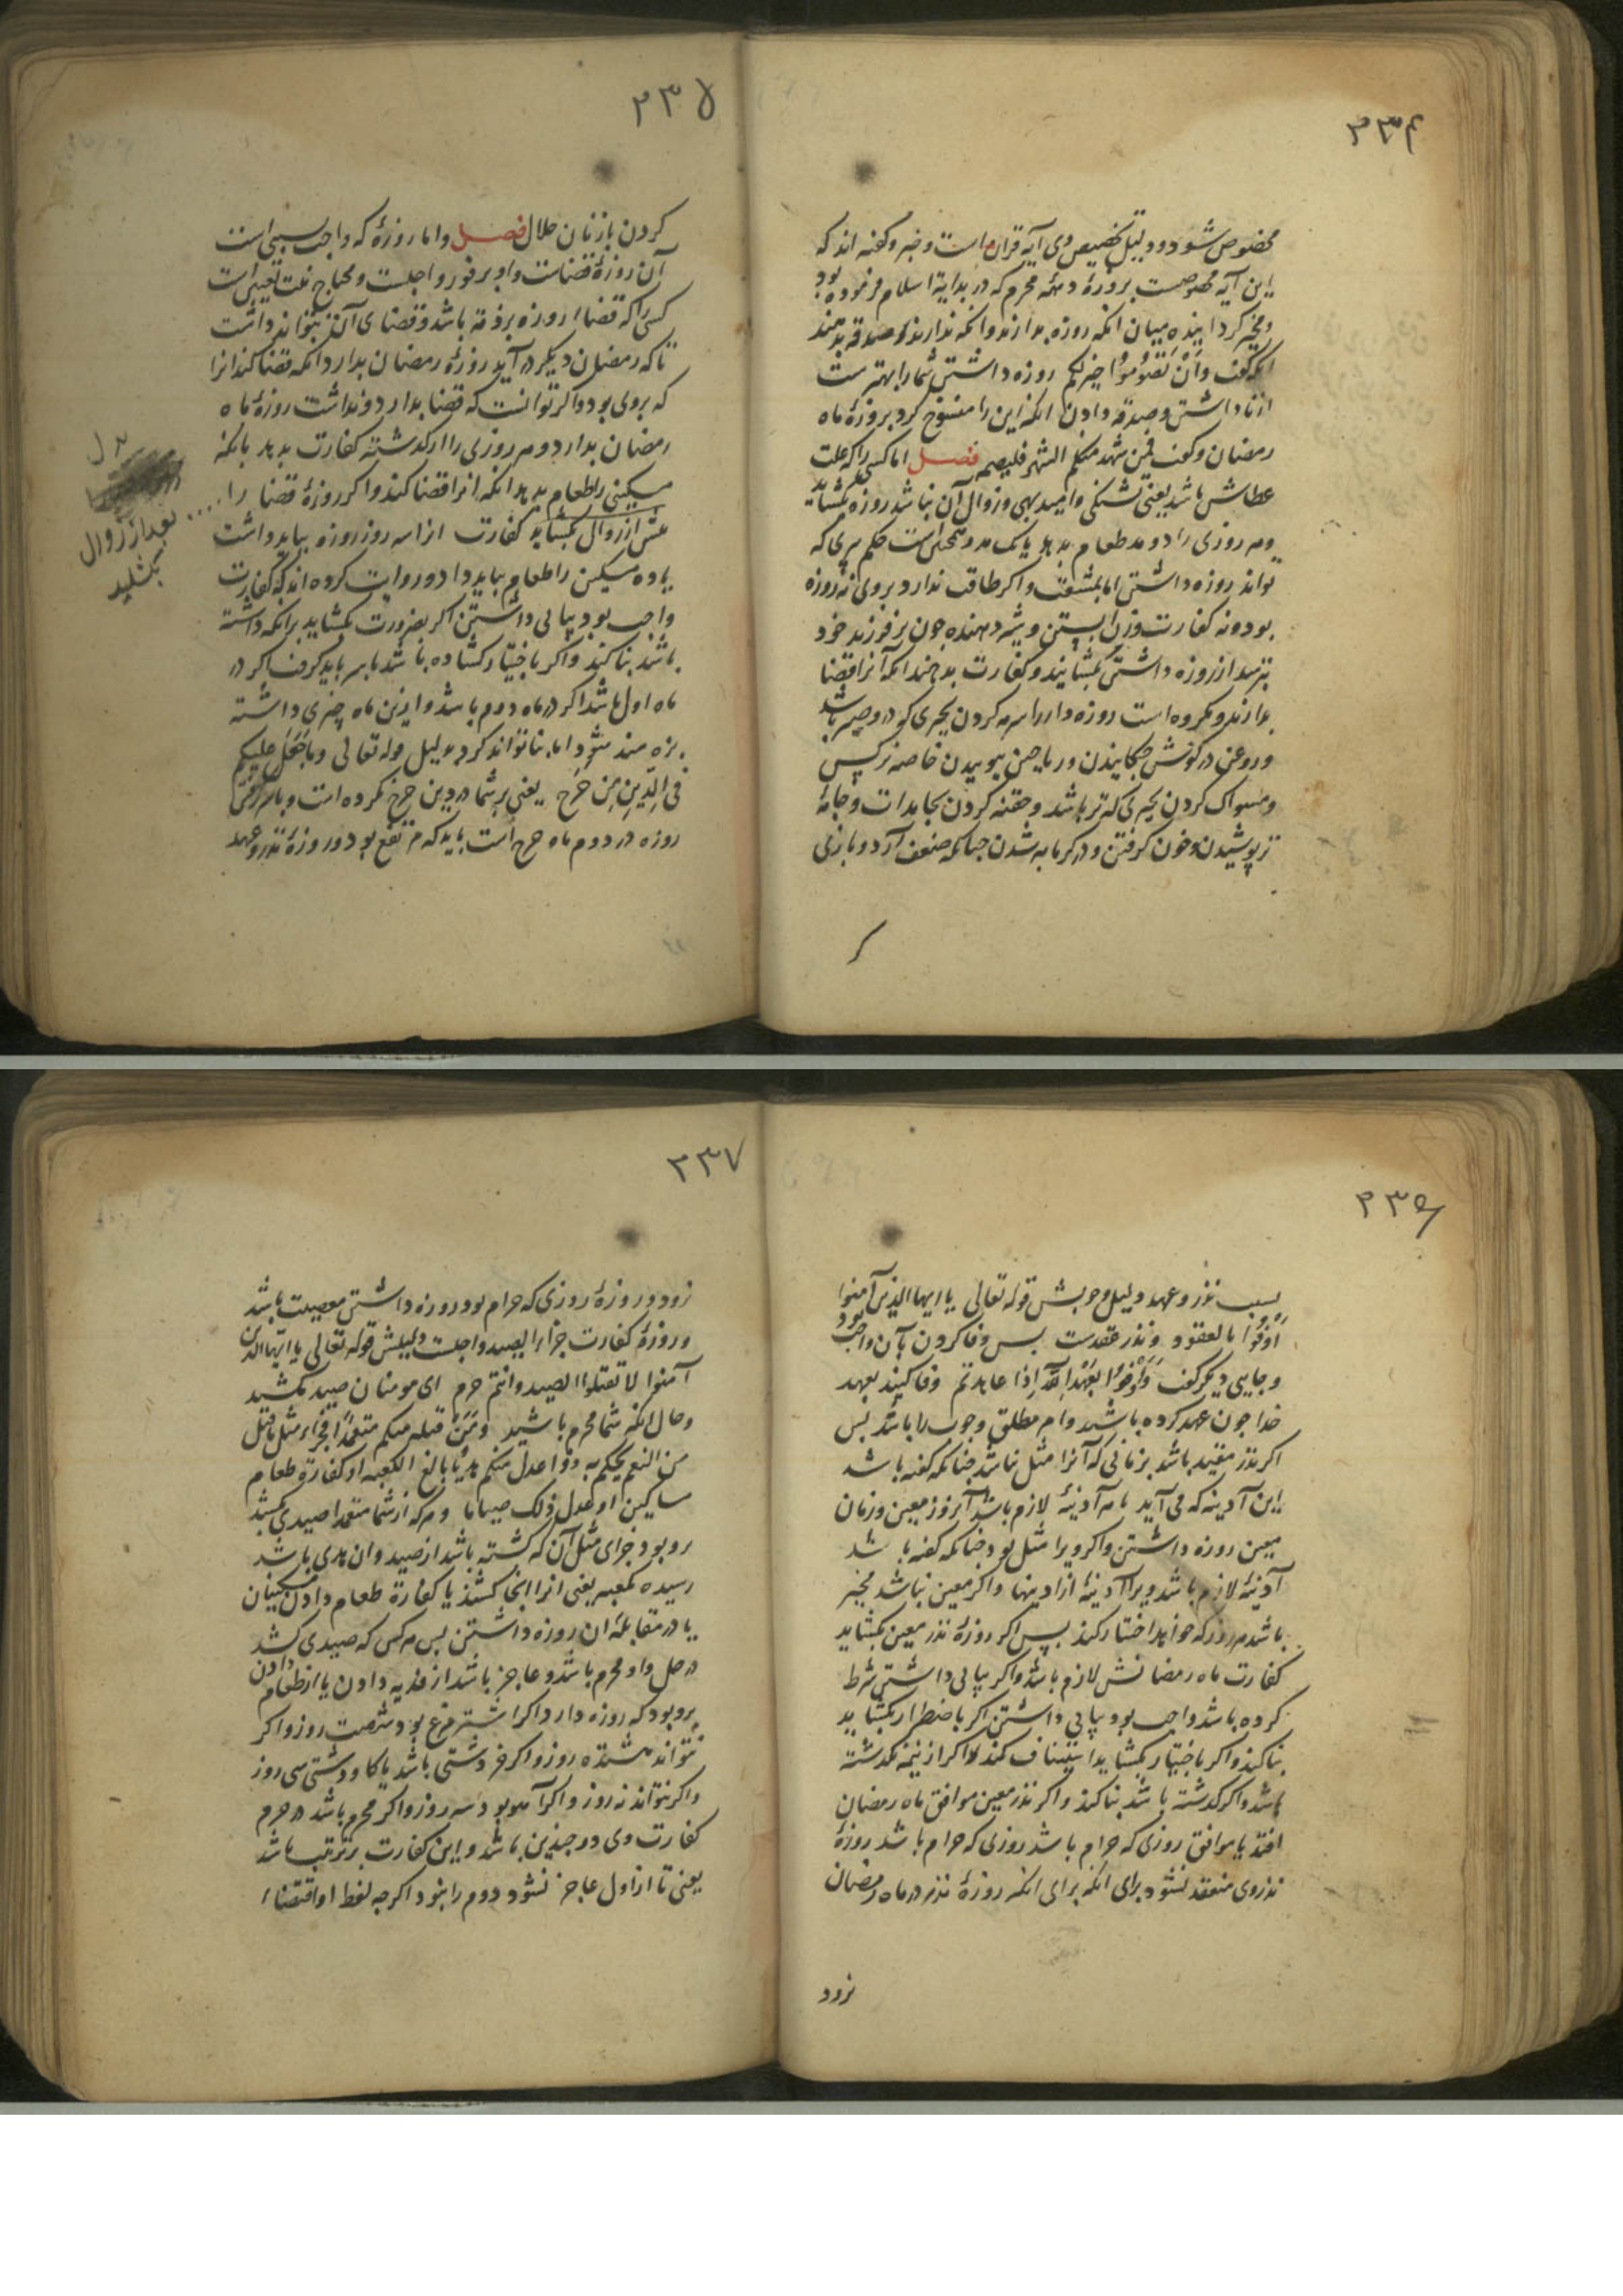 ۲۳۴
مخصوص شود و دلیل تخصیص وی آیه قران است و خبر و گفته اند که
این آیه مخصوصست بروزهٔ دههٔ محرم که در بدایة اسلام فرموده بود
و مخیر کردانیده میان انکه روزه بدارند و انکه ندارند و صدقه بدهند
انکه گفت وَاَنْ تَصُوْمُوْا خیر لکم روزه داشتن شما را بهتر ست
از ناداشتن و صدقه دادن انکه این را منسوخ کرد بروزهٔ ماه
رمضان و گفت فمن شهد منکم الشهر فلیصمه فصل اما کسی را که علت
عطاش باشد یعنی تشنگی و امید بهی و زوال آن نباشد روزه بگشاید
و هر روزی را دو مد طعام بدهد یا یک مد و همچنین است حکم پیری که
تواند روزه داشتن اما بمشقت و اکر طاقت ندارد بر وی نه روزه
بود و نه کفارت و زن آبستن و شیر دهنده چون بر فرزند خود
بترسد از روزه داشتن بگشایند و کفارت بدهند انکه آنرا قضا
بدارند و مکروه است روزه دار را سرمه کردن بچیزی که در وی صبر باشد
و روغن در کوش چکانیدن و ریاحین بوییدن خاصه نرکس
و مسواک کردن بچیزی که تر باشد و حقنه کردن بجامدات و جامهٔ
تر پوشیدن و خون گرفتن و در گرمابه شدن چنانکه ضعف آرد و بازی
کر
۲۳۵
کردن با زنان حلال فصل و اما روزهٔ که واجب سببی است
آن روزهٔ قضاست و او بر فور واجبست و محتاج نیت تعیین است
کسی را که قضاء روزه بر ذمه باشد و قضای آن نتواند داشت
تا که رمضان دیگر در آید روزهٔ رمضان بدارد انکه قضا کند انرا
که بر وی بود و اکر توانست که قضا بدارد و نداشت روزهٔ ماه
رمضان بدارد و هر روزی را از گذشته کفارت بدهد بانکه
مسکینی را طعام بدهد انکه انرا قضا کند و اکر روزهٔ قضا را ....
پیش از زوال بگشاید کفارت انرا سه روز روزه بباید داشت
یا ده مسکین را طعام بباید داد و روایت کرده اند که کفارت
واجب بود پیاپی داشتن اکر بضرورت بگشاید بر انکه داشته
باشد بنا کند و اکر باختیار گشاده باشد با سر باید گرفت اکر در
ماه اول باشد اکر در ماه دوم باشد و ازین ماه چیزی داشته
بزه مند شود اما بنا تواند کرد بدلیل قوله تعالی و ما جَعَلَ علیکم
فی الدِّینِ مِنْ حَرَجٍ یعنی بر شما در دین حرج نکرده است و باسرگرفتن
روزه در دوم ماه حرج است باید که مرتفع بود و روزهٔ نذر و عهد
بعد از زوال
بکشاید
۲۳۶
بسبب نذر و عهد دلیل وجوبش قوله تعالی یا ایها الذین آمنوا
اَوْفُوْا بالعقود و نذر عقدست پس وفا کردن بآن واجب بود
و جایی دیگر گفت وَاَوْفُوْا بِعَهْدِ اللّهِ اِذَا عاهدتم وفا کنید بعهد
خدا چون عهد کرده باشید و امر مطلق وجوب را باشد پس
اکر نذر مقید باشد بزمانی که آنرا مثل نباشد چنانکه گفته باشد
این آدینه که می آید یا هر آدینهٔ لازم باشد آنروز معین و زمان
معین روزه داشتن و اکر ویرا مثل بود چنانکه گفته باشد
آدینهٔ لازم باشد ویرا آدینهٔ از ادینها و اکر معین نباشد مخیر
باشد هر روز که خواهد اختیار کند پس اکر روزهٔ نذر معین بگشاید
کفارت ماه رمضانش لازم باشد و اکر پیاپی داشتن شرط
کرده باشد واجب بود پیاپی داشتن اکر باضطرار بگشاید
بنا کند و اکر باختیار بگشاید استیناف کند اکر از نیمه نگذشته
باشد و اکر گذشته باشد بنا کند و اکر نذر معین موافق ماه رمضان
افتد یا موافق روزی که حرام باشد روزی که حرام باشد روزهٔ
نذر وی منعقد نشود برای انکه برای انکه روزهٔ نذر در ماه رمضان
نرود
۲۳۷
نرود و روزهٔ روزی که حرام بود روزه داشتن معصیت باشد
و روزهٔ کفارت جزاء الصید واجبست دلیلش قوله تعالی یا ایها الذین
آمنوا لا تقتلوا الصید و انتم حرم ای مومنان صید مکشید
و حال انکه شما محرم باشید وَمَنْ قتله منکم متعمّدًا فجزاء مثل ما قتل
من النعم یحکم به ذوا عدل منکم هدیًا بالغ الکعبه او کفارة طعام
مساکین او عدل ذلک صیاما و هر که از شما متعمدا صیدی بکشد
برو بود جزای مثل آن که کشته باشد از صید و ان هدی باشد
رسیده بکعبه یعنی انرا انجا کشند یا کفارة طعام دادن مسکینان
یا در مقابلهٔ ان روزه داشتن پس هر کس که صیدی کشد
در حل و او محرم باشد و عاجز باشد از فدیه دادن یا از طعام دادن
برو بود که روزه دارد اکر اشترمرغ بود شصت روز و اکر
نتواند هشتده روز و اکر خر دشتی باشد یا کاو دشتی سی روز
و اکر نتواند نه روز و اکر آهو بود سه روز و اکر محرم باشد در حرم
کفارت وی دو چندین باشد و این کفارت بر ترتیب باشد
یعنی تا از اول عاجز نشود دوم را نبود اکرچه لفظ او اقتضاء